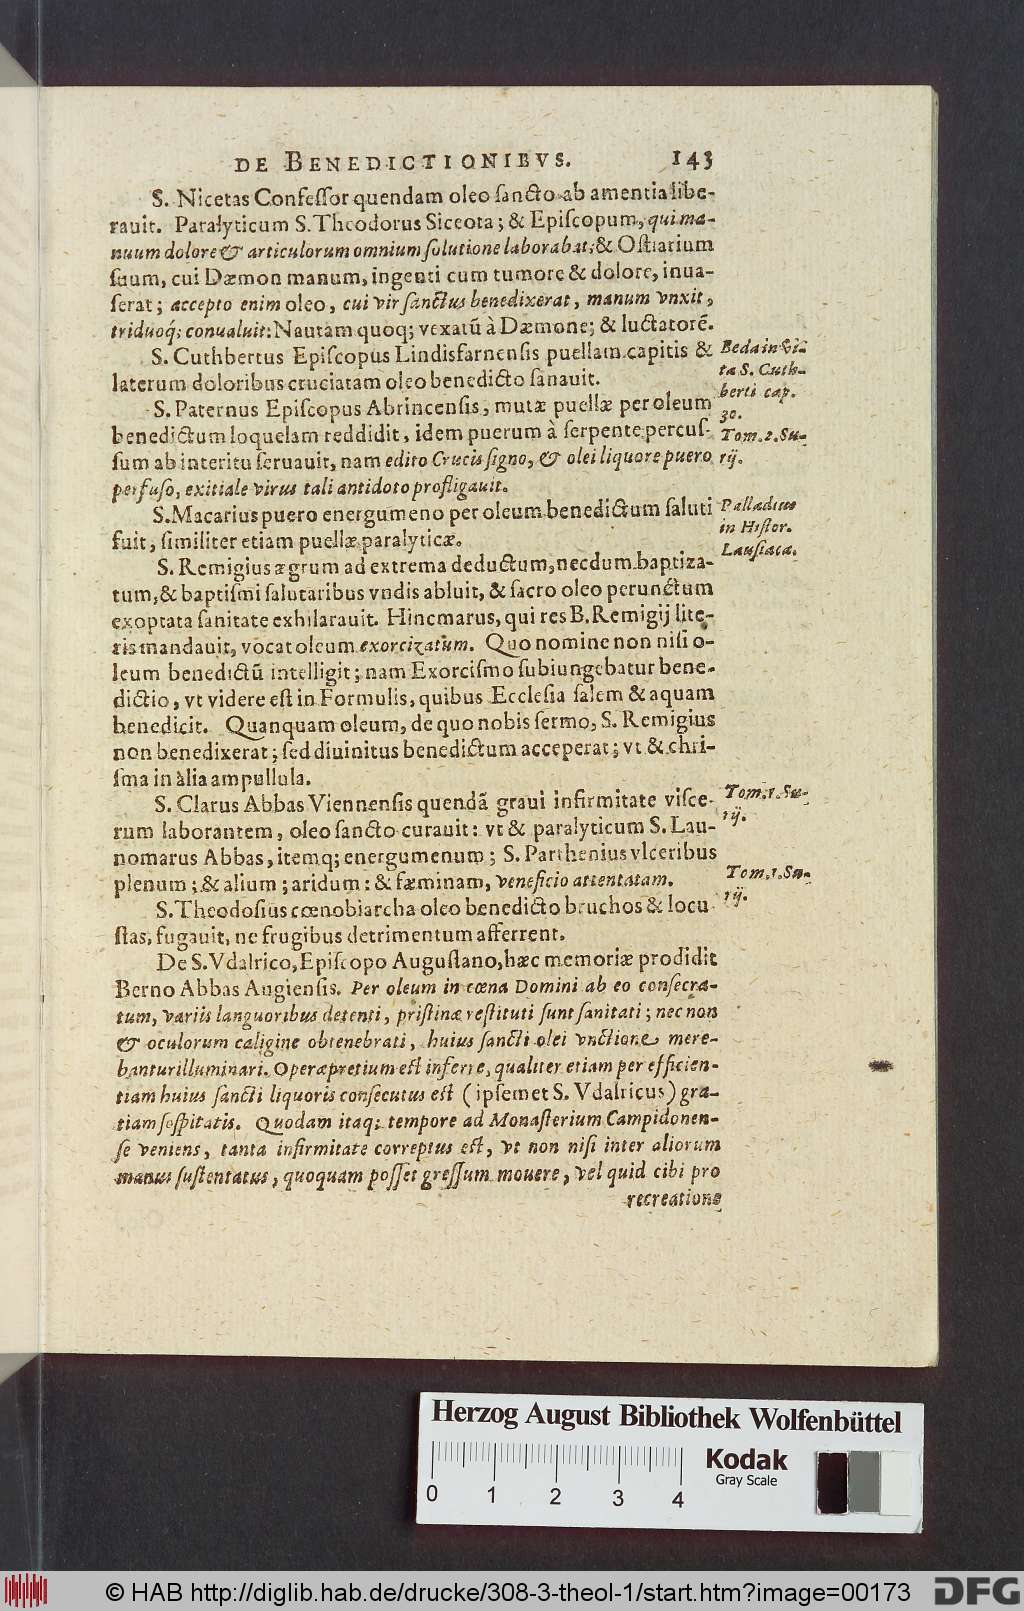 DE BENEDICTIONIBVS. 143
S. Nicetas Confeſſor quendam oleo ſancto ab amentia libe-
rauit. Paralyticum S. Theodorus Siceota; & Epiſcopum, qui ma-
nuum dolore & articulorum omnium ſolutione laborabat; & Oſtiarium
ſuum, cui Dæmon manum, ingenti cum tumore & dolore, inua-
ſerat; accepto enim oleo, cui vir ſanctus benedixerat, manum vnxit,
triduoq; conualuit: Nautam quoq; vexatũ à Dæmone; & luctatorẽ.
S. Cuthbertus Epiſcopus Lindisfarnenſis puellam capitis &
laterum doloribus cruciatam oleo benedicto ſanauit.
Beda in Vi-
ta S. Cuth-
berti cap.
30.
S. Paternus Epiſcopus Abrincenſis, mutæ puellæ per oleum
benedictum loquelam reddidit, idem puerum à ſerpente percuſ-
ſum ab interitu ſeruauit, nam edito Crucis ſigno, & olei liquore puero
perfuſo, exitiale virus tali antidoto profligauit.
Tom. 2. Su-
rij.
S. Macarius puero energumeno per oleum benedictum ſaluti
fuit, ſimiliter etiam puellæ paralyticæ.
Palladius
in Hiſtor.
Lauſiaca.
S. Remigius ægrum ad extrema deductum, necdum baptiza-
tum, & baptiſmi ſalutaribus vndis abluit, & ſacro oleo perunctum
exoptata ſanitate exhilarauit. Hincmarus, qui res B. Remigij lite-
ris mandauit, vocat oleum exorcizatum. Quo nomine non niſi o-
leum benedictũ intelligit; nam Exorciſmo ſubiungebatur bene-
dictio, vt videre eſt in Formulis, quibus Eccleſia ſalem & aquam
benedicit. Quanquam oleum, de quo nobis ſermo, S. Remigius
non benedixerat; ſed diuinitus benedictum acceperat; vt & chri-
ſma in alia ampullula.
S. Clarus Abbas Viennenſis quendã graui infirmitate viſce-
rum laborantem, oleo ſancto curauit: vt & paralyticum S. Lau-
nomarus Abbas, itemq; energumenum; S. Parthenius vlceribus
plenum; & alium; aridum: & fæminam, veneficio attentatam.
Tom. 1. Su-
rij.
Tom. 1. Su-
rij.
S. Theodoſius cœnobiarcha oleo benedicto bruchos & locu
ſtas, fugauit, ne frugibus detrimentum afferrent.
De S. Vdalrico, Epiſcopo Auguſtano, hæc memoriæ prodidit
Berno Abbas Augienſis. Per oleum in cœna Domini ab eo conſecra-
tum, variis languoribus detenti, priſtinæ reſtituti ſunt ſanitati; nec non
& oculorum caligine obtenebrati, huius ſancti olei vnctione mere-
bantur illuminari. Operæpretium eſt inferre, qualiter etiam per efficien-
tiam huius ſancti liquoris conſecutus eſt (ipſemet S. Vdalricus) gra-
tiam ſoſpitatis. Quodam itaq; tempore ad Monaſterium Campidonen-
ſe veniens, tanta infirmitate correptus eſt, vt non niſi inter aliorum
manus ſuſtentatus, quoquam poſſet greſſum mouere, vel quid cibi pro
recreatione
Herzog August Bibliothek Wolfenbüttel
0 1 2 3 4
Kodak
Gray Scale
© HAB http://diglib.hab.de/drucke/308-3-theol-1/start.htm?image=00173
DFG